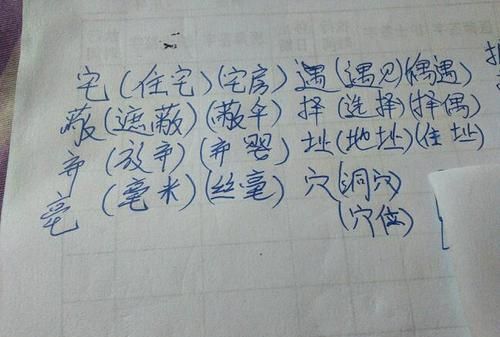 宅(住宅)(宅房) 遇(遇见)(偶遇)
蔽(遮蔽)(蔽伞) 择(选择)(择偶)
弃(放弃)(弃婴) 址(地址)(住址)
毫(毫米)(丝毫) 穴(洞穴)
(穴位)